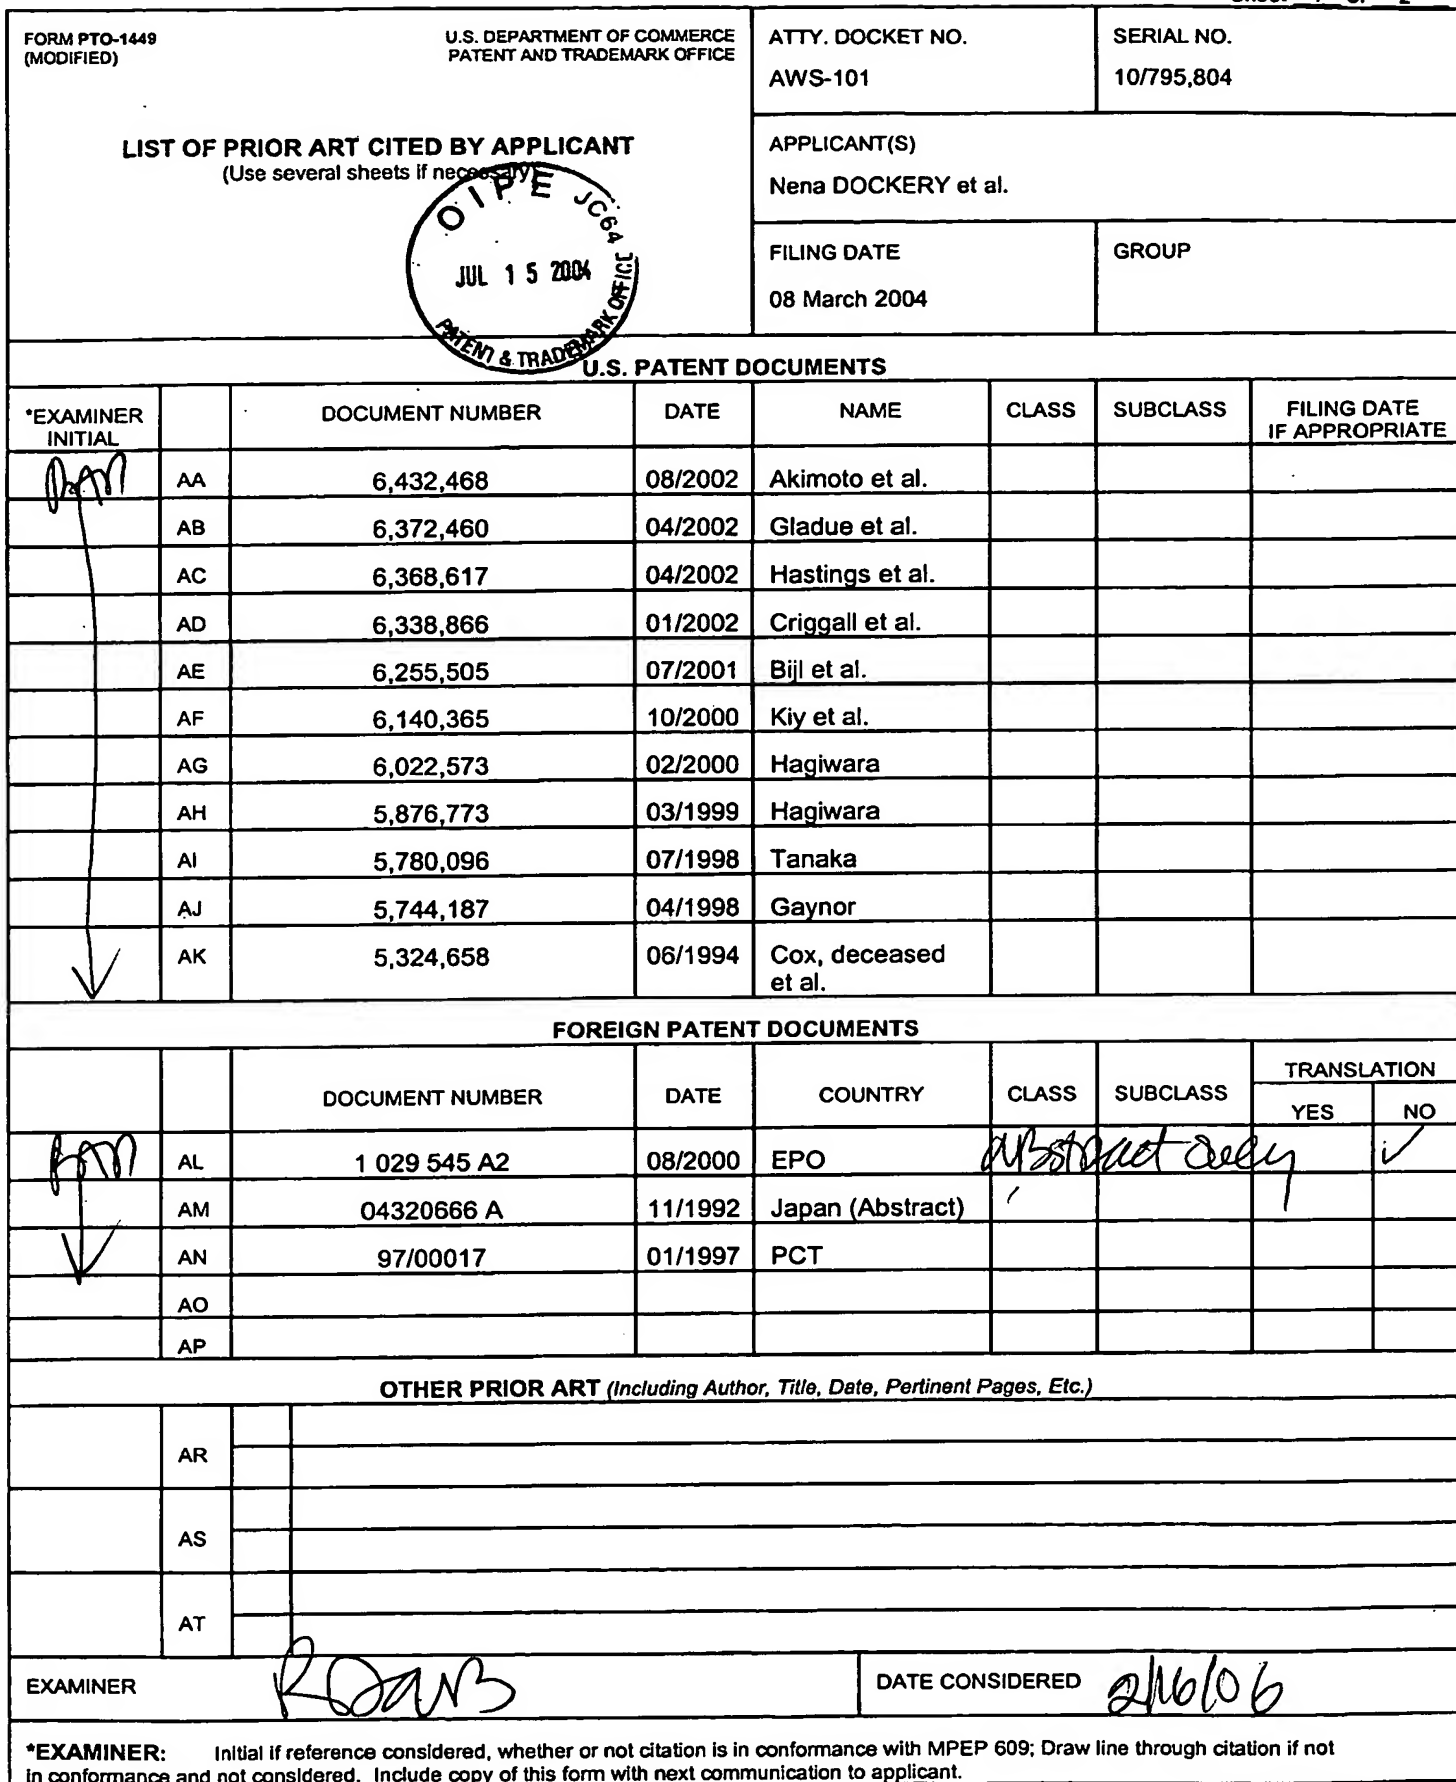 FORM PTO-1449 U.S. DEPARTMENT OF COMMERCE
(MODIFIED) PATENT AND TRADEMARK OFFICE
ATTY. DOCKET NO.
AWS-101
SERIAL NO.
10/795,804
LIST OF PRIOR ART CITED BY APPLICANT
(Use several sheets if necessary)
APPLICANT(S)
Nena DOCKERY et al.
OIPE JC64
JUL 15 2004
PATENT & TRADEMARK OFFICE
FILING DATE
08 March 2004
GROUP
U.S. PATENT DOCUMENTS
*EXAMINER INITIAL DOCUMENT NUMBER DATE NAME CLASS SUBCLASS FILING DATE IF APPROPRIATE
AA 6,432,468 08/2002 Akimoto et al.
AB 6,372,460 04/2002 Gladue et al.
AC 6,368,617 04/2002 Hastings et al.
AD 6,338,866 01/2002 Criggall et al.
AE 6,255,505 07/2001 Bijl et al.
AF 6,140,365 10/2000 Kiy et al.
AG 6,022,573 02/2000 Hagiwara
AH 5,876,773 03/1999 Hagiwara
AI 5,780,096 07/1998 Tanaka
AJ 5,744,187 04/1998 Gaynor
AK 5,324,658 06/1994 Cox, deceased
et al.
FOREIGN PATENT DOCUMENTS
DOCUMENT NUMBER DATE COUNTRY CLASS SUBCLASS TRANSLATION
YES NO
AL 1 029 545 A2 08/2000 EPO Abstract only ✓
AM 04320666 A 11/1992 Japan (Abstract)
AN 97/00017 01/1997 PCT
AO
AP
OTHER PRIOR ART (Including Author, Title, Date, Pertinent Pages, Etc.)
AR
AS
AT
EXAMINER
DATE CONSIDERED 2/16/06
*EXAMINER: Initial if reference considered, whether or not citation is in conformance with MPEP 609; Draw line through citation if not
in conformance and not considered. Include copy of this form with next communication to applicant.